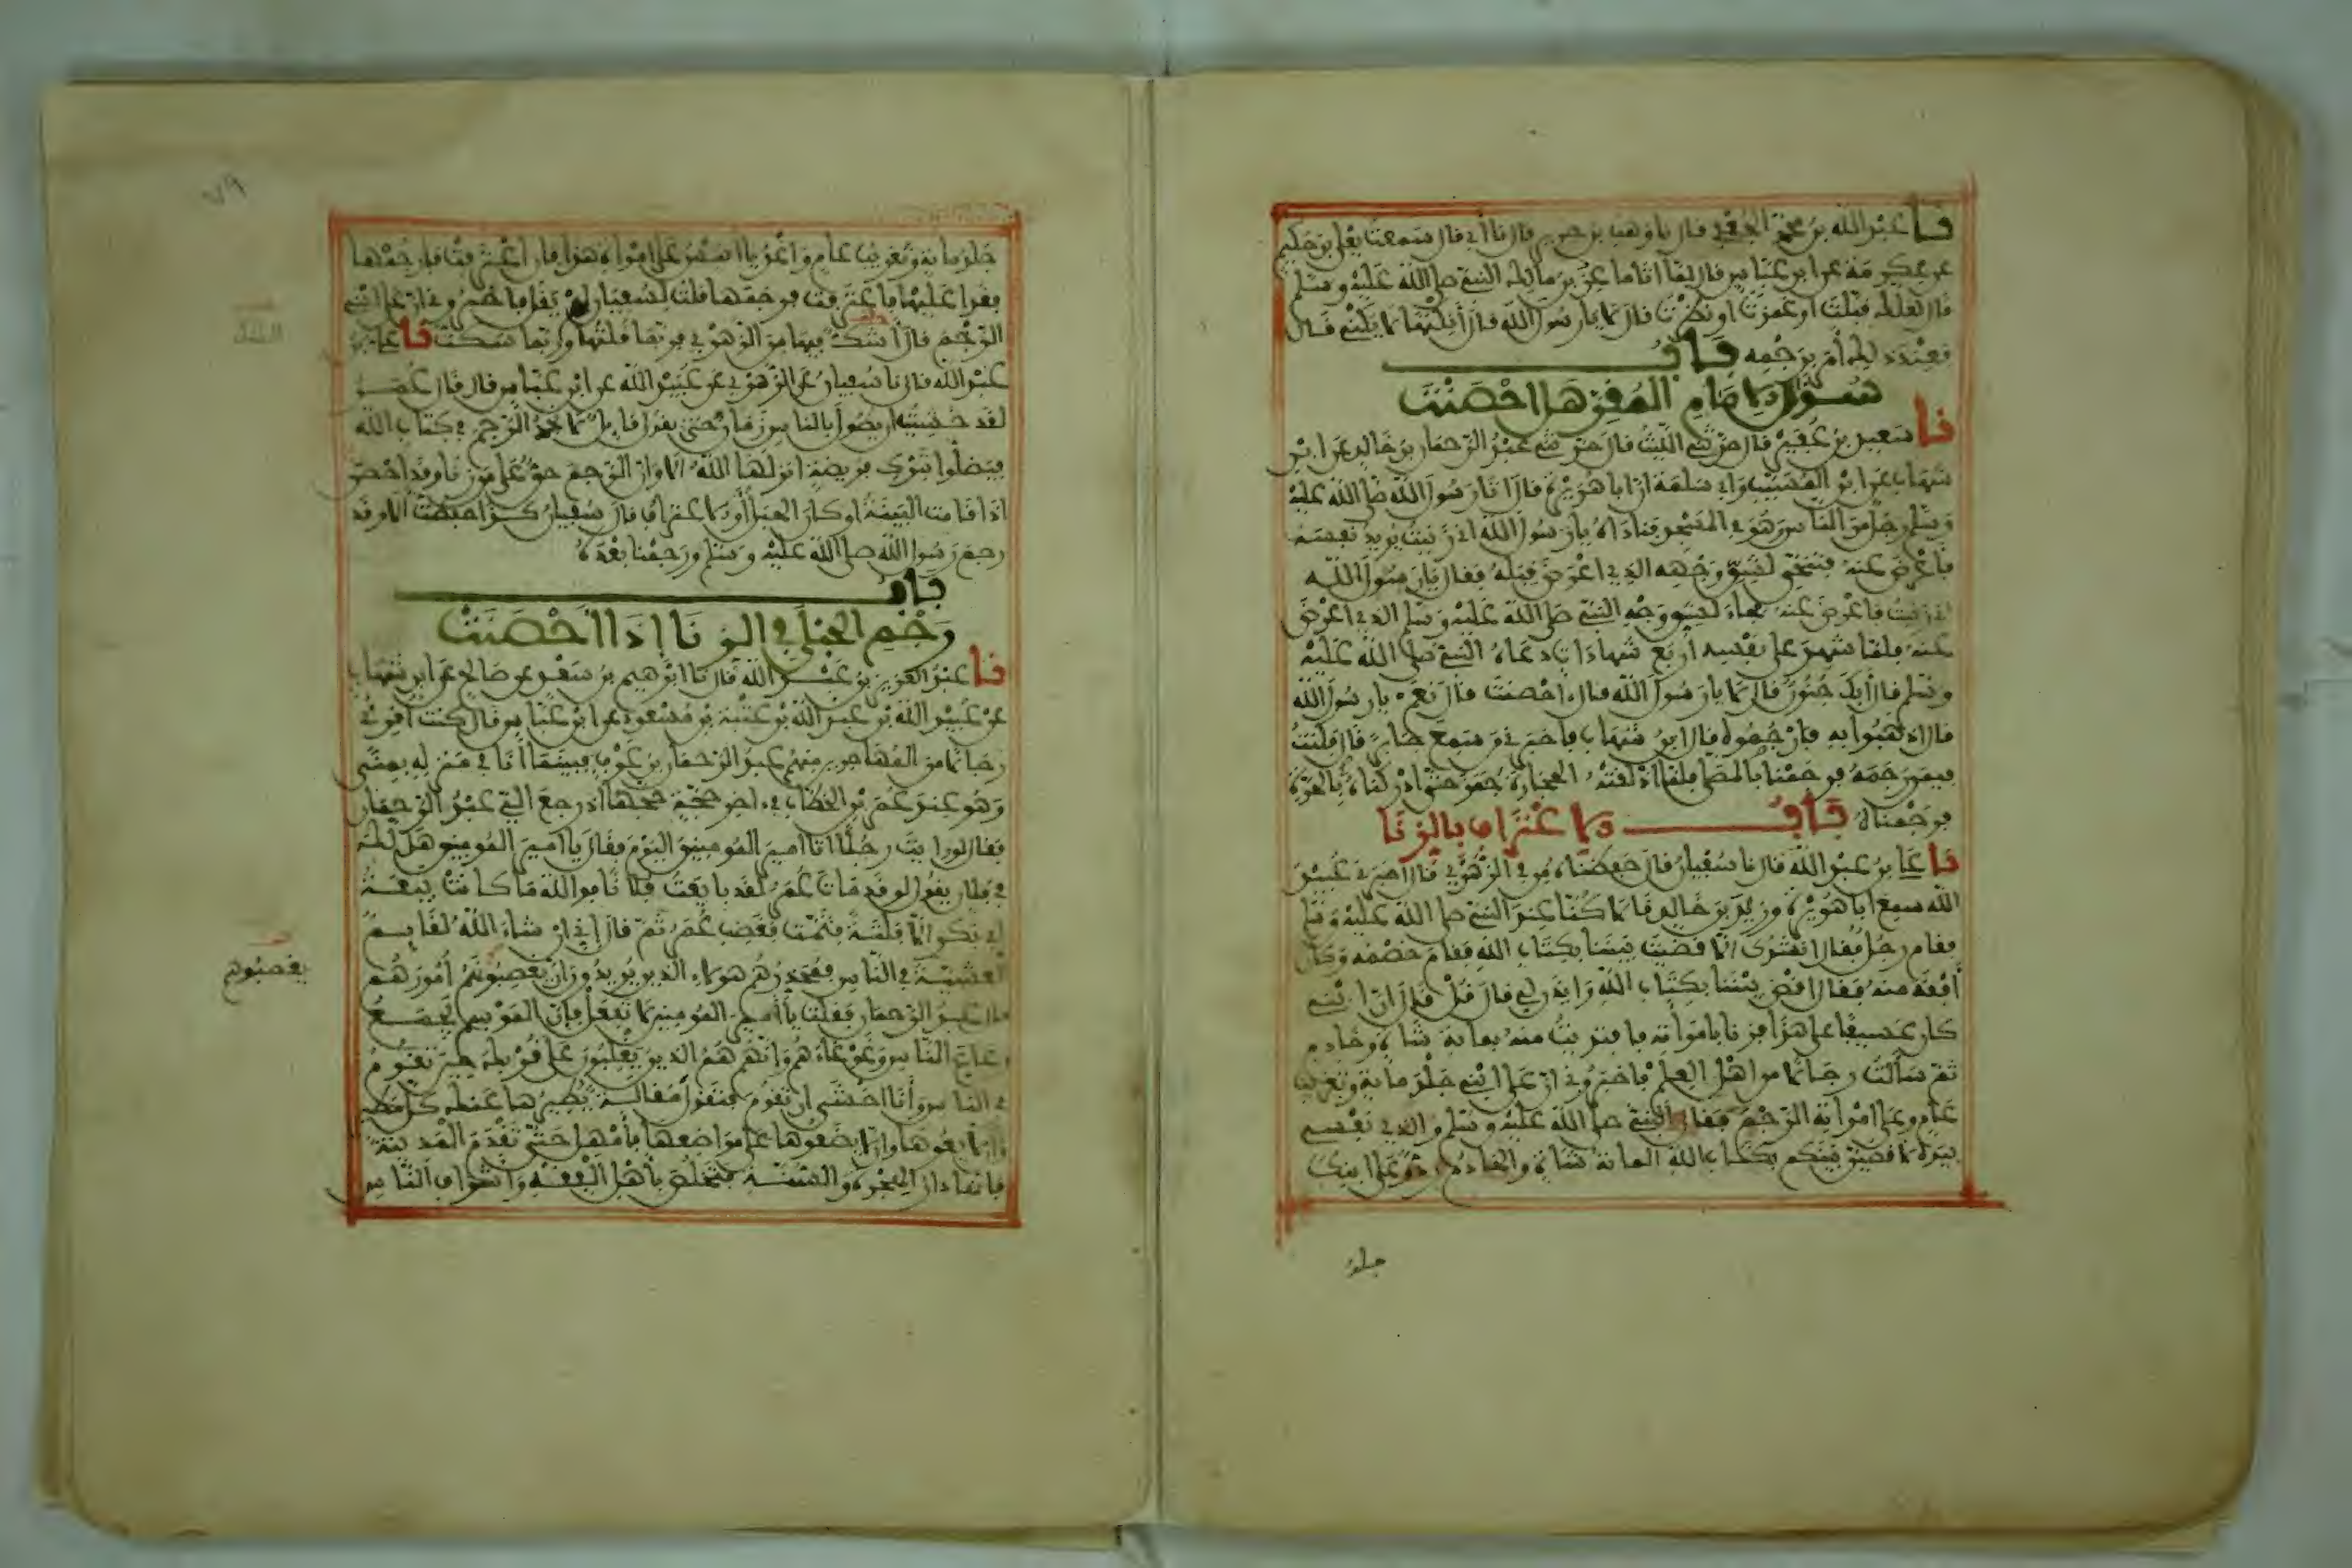 نا عبد الله بن محمد الجعفي قال نا وهب بن جرير قال نا أبي قال سمعت يعلى بن حكيم
عن عكرمة عن ابن عباس قال لما أتى ماعز بن مالك النبي صلى الله عليه وسلم
قال لعلك قبلت أو غمزت أو نظرت قال لا يا رسول الله قال أنكتها لا يكني قال
فعند ذلك أمر برجمه باب
سؤال الإمام المقر هل أحصنت
نا سعيد بن عفير قال حدثني الليث قال حدثني عبد الرحمان بن خالد عن ابن
شهاب عن ابن المسيب وأبي سلمة أن أبا هريرة قال أتى رسول الله صلى الله عليه
وسلم رجل من الناس وهو في المسجد فناداه يا رسول الله إني زنيت يريد نفسه
فأعرض عنه فتنحى لشق وجهه الذي أعرض قبله فقال يا رسول الله
إني زنيت فأعرض عنه فجاء لشق وجه النبي صلى الله عليه وسلم الذي أعرض
عنه فلما شهد على نفسه أربع شهادات دعاه النبي صلى الله عليه
وسلم فقال أبك جنون قال لا يا رسول الله قال أحصنت قال نعم يا رسول الله
قال اذهبوا به فارجموه قال ابن شهاب فأخبرني من سمع جابرا قال فكنت
فيمن رجمه فرجمناه بالمصلى فلما أذلقته الحجارة جمز حتى أدركناه بالحرة
فرجمناه باب الاعتراف بالزنا
نا علي بن عبد الله قال نا سفيان قال حفظناه من في الزهري قال أخبرني عبيد
الله سمع أبا هريرة وزيد بن خالد قالا كنا عند النبي صلى الله عليه وسلم
فقام رجل فقال أنشدك إلا قضيت بيننا بكتاب الله فقام خصمه وكان
أفقه منه فقال اقض بيننا بكتاب الله وايذن لي قال قل قال إن ابني
كان عسيفا على هذا فزنا بامرأته فافتديت منه بماية شاة وخادم
ثم سألت رجالا من أهل العلم فأخبروني أن على ابني جلد ماية وتغريب
عام وعلى امرأته الرجم فقال النبي صلى الله عليه وسلم والذي نفسي
بيده لأقضين بينكم بكتاب الله الماية شاة والخادم رد وعلى ابنك
جلد
٧٩
جلد ماية وتغريب عام واغد يا أنيس على امرأة هذا فإن اعترفت فارجمها
فغدا عليها فاعترفت فرجمها قلت لسفيان لم يقل فأخبروني أن على ابني
الرجم فقال أشك فيها من الزهري فربما قلتها وربما سكت نا علي بن
عبد الله قال نا سفيان عن الزهري عن عبيد الله عن ابن عباس قال قال عمر
لقد خشيت أن يطول بالناس زمان حتى يقول قايل لا نجد الرجم في كتاب الله
فيضلوا بترك فريضة أنزلها الله ألا وإن الرجم حق على من زنا وقد أحصن
إذا قامت البينة أو كان الحبل أو الاعتراف قال سفيان كذا حفظت ألا وقد
رجم رسول الله صلى الله عليه وسلم ورجمنا بعده
باب
رجم الحبلى في الزنا إذا أحصنت
نا عبد العزيز بن عبد الله قال نا إبرهيم بن سعد عن صالح عن ابن شهاب
عن عبيد الله بن عبد الله بن عتبة بن مسعود عن ابن عباس قال كنت أقرئ
رجالا من المهاجرين منهم عبد الرحمان بن عوف فبينما أنا في منزله بمنى
وهو عند عمر بن الخطاب في آخر حجة حجها إذ رجع إلي عبد الرحمان
فقال لو رأيت رجلا أتا أمير المومنين اليوم فقال يا أمير المومنين هل لك
في فلان يقول لو قد مات عمر لقد بايعت فلانا فوالله ما كانت بيعة
أبي بكر إلا فلتة فتمت فغضب عمر ثم قال إني إن شاء الله لقايم
العشية في الناس فمحذرهم هؤلاء الذين يريدون أن يغصبونهم أمورهم
يغصبوهم
قال عبد الرحمان فقلت يا أمير المومنين لا تفعل فإن الموسم يجمع
رعاع الناس وغوغاءهم وإنهم هم الذين يغلبون على قربك حين تقوم
في الناس وأنا أخشى أن تقوم فتقول مقالة يطيرها عنك كل مطير
وألا يعوها وألا يضعوها على مواضعها فأمهل حتى تقدم المدينة
فإنها دار الهجرة والسنة فتخلص بأهل الفقه وأشراف الناس